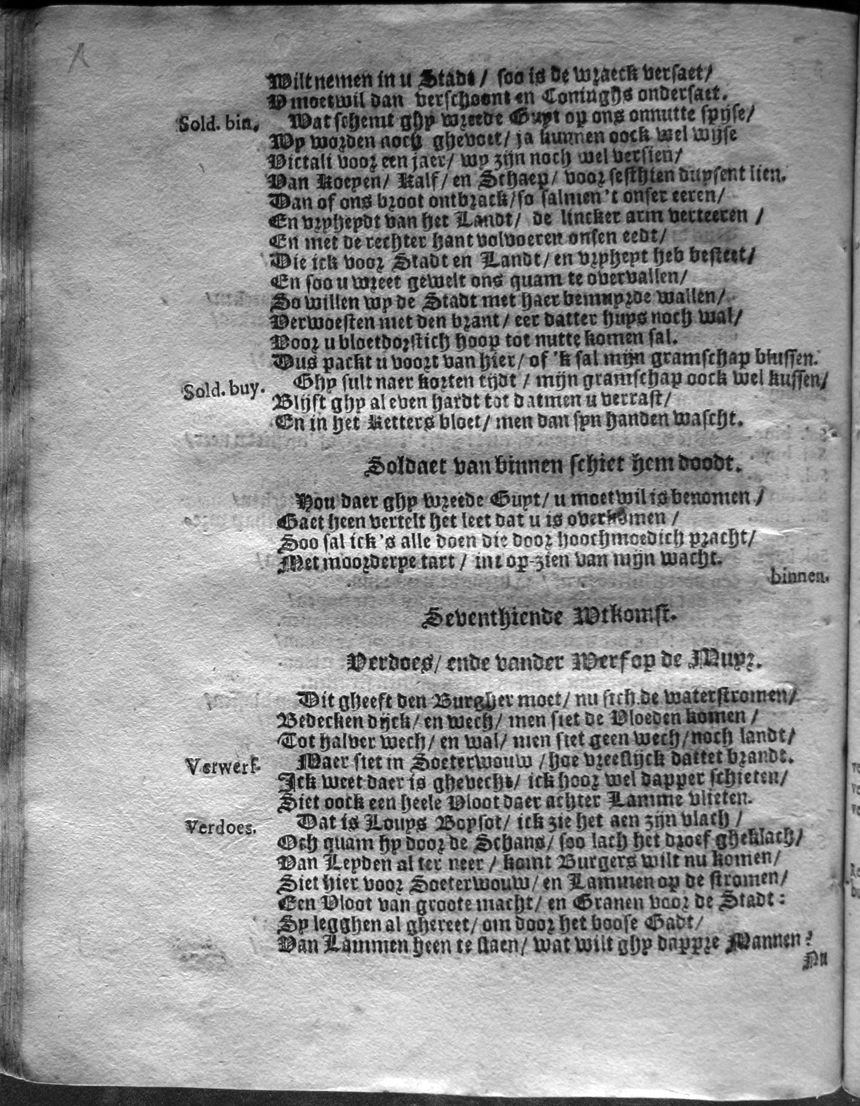 Wilt nemen in u Stadt / soo is de wraeck versaet /
V moetwil dan verschoont en Coninghs ondersaet.
Sold. bin. Wat schemt ghy wreede Guyt op ons onnutte spyse /
Wy worden noch ghevoet / ja kunnen oock wel wyse
Victali voor een jaer / wy zijn noch wel versien /
Van Koeyen / Kalf / en Schaep / voor sesthien duysent lien.
Dan of ons broot ontbrack / so salmen 't onser eeren /
En vryheydt van het Landt / de lincker arm verteeren /
En met de rechter hant volvoeren onsen eedt /
Die ick voor Stadt en Landt / en vryheyt heb besteet /
En soo u wreet gewelt ons quam te overvallen /
So willen wy de Stadt met haer bemuyrde wallen /
Verwoesten met den brant / eer datter huys noch wal /
Voor u bloetdorstich hoop tot nutte komen sal.
Dus packt u voort van hier / of 'k sal mijn gramschap blussen.
Sold. buy. Ghy sult naer korten tijdt / mijn gramschap oock wel kussen /
Blijft ghy al even hardt tot datmen u verrast /
En in het Ketters bloet / men dan syn handen wascht.
Soldaet van binnen schiet hem doodt.
Hou daer ghy wreede Guyt / u moetwil is benomen /
Gaet heen vertelt het leet dat u is overkomen /
Soo sal ick's alle doen die door hoochmoedich pracht /
Met moorderye tart / int op-zien van mijn wacht.
binnen.
Seventhiende Wtkomst.
Verdoes / ende vander Werf op de Muyr.
Dit gheeft den Burgher moet / nu sich de waterstromen /
Bedecken dijck / en wech / men siet de Vloeden komen /
Tot halver wech / en wal / men siet geen wech / noch landt /
Verwerf. Maer siet in Soeterwouw / hoe vreeslijck dattet brandt.
Ick weet daer is ghevecht / ick hoor wel dapper schieten /
Siet oock een heele Vloot daer achter Lamme vlieten.
Verdoes. Dat is Louys Boysot / ick zie het aen zijn vlach /
Och quam hy door de Schans / soo lach het droef gheklach /
Van Leyden al ter neer / komt Burgers wilt nu komen /
Siet hier voor Soeterwouw / en Lammen op de stromen /
Een Vloot van groote macht / en Granen voor de Stadt :
Sy legghen al ghereet / om door het boose Gadt /
Van Lammen heen te slaen / wat wilt ghy dappre Mannen ?
Nu